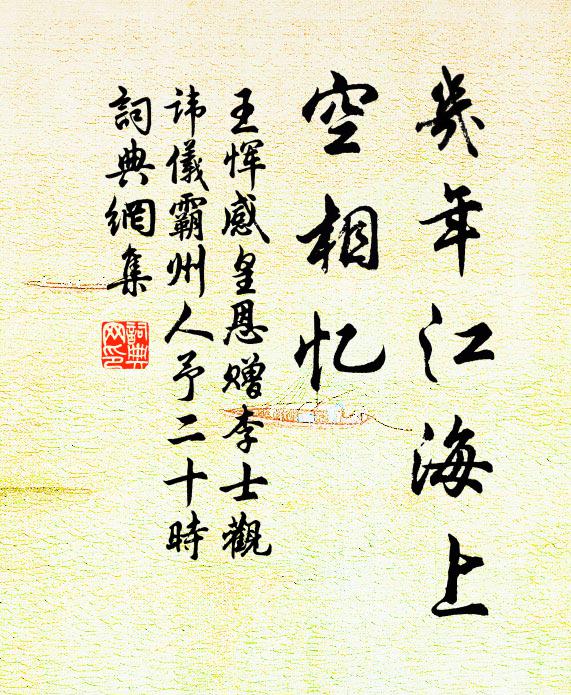 幾年江海上
空相忆
王恽感皇恩赠李士觀
讳儀霸州人予二十時
詞典網集
詞典网印